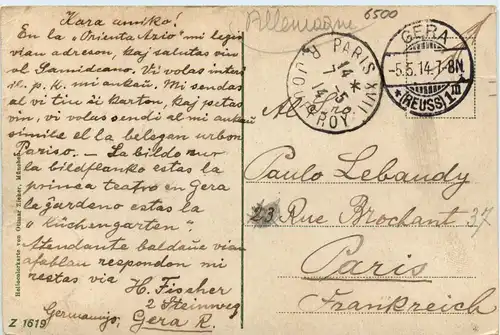 Allemagne
6500
Kara amiko!
En la "Orienta Azio" mi legis
vian adreson, kaj salutas vin
ol Samideano. Vi volas inters.
il. p. k. mi ankaŭ. Mi sendas
al vi tiu ĉi karton, kaj petas
vin, vi volas sendi al mi ankaŭ
simile el la belegan urbon
Pariso. – La bildo sur
la bildflanko estas la
princa teatro en Gera
la ĝardeno estas la
"Küchengarten"
Atendante baldaŭe vian
afablan respondon mi
restas via H. Fischer
2 Steinweg
Germanujo, Gera R.
PARIS XVII
R. JOUFFROY
GERA
5.5.14.7-8N.
* (REUSS) 1m
Al S-ro
Paulo Lebaudy
23 Rue Brochant 37
Paris
Frankreich
Heliocolorkarte von Ottmar Zieher, München
Z 1619